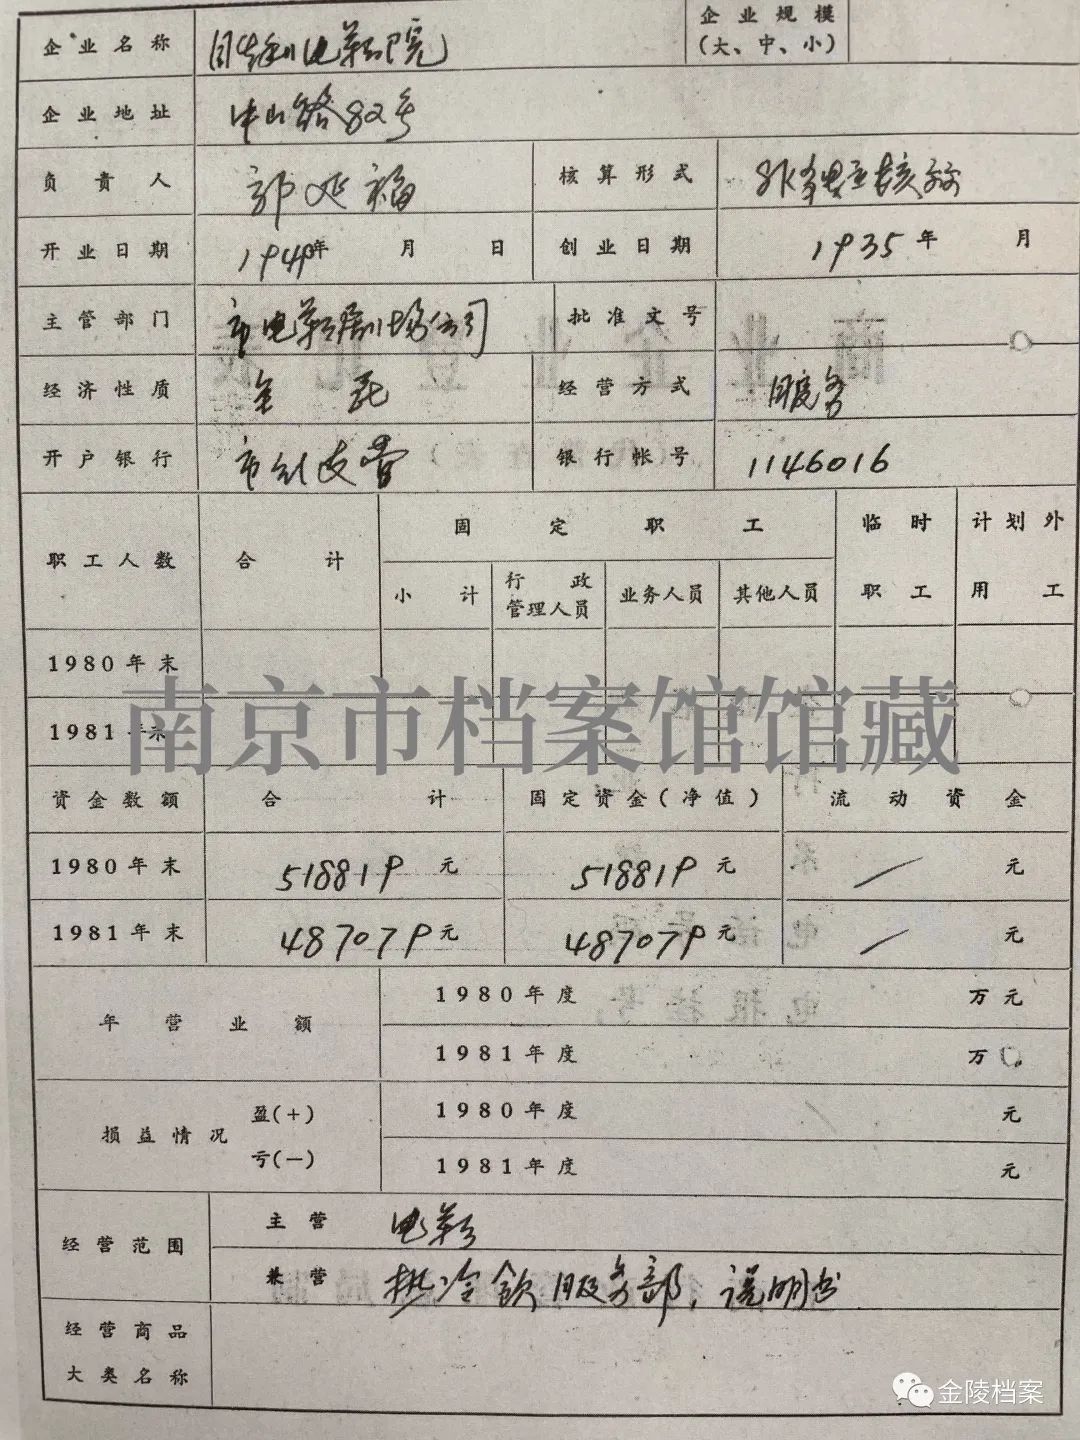 企业名称 胜利电影院 企业规模(大、中、小)
企业地址 中山路82号
负责人 郭延福 核算形式 独立核算
开业日期 1949年 月 日 创业日期 1935年 月
主管部门 市电影剧场公司 批准文号
经济性质 全民 经营方式 服务
开户银行 市分友营 银行帐号 1146016
职工人数 合计 固定职工 临时职工 计划外用工
小计 行政管理人员 业务人员 其他人员
1980年末
1981年末
南京市档案馆馆藏
资金数额 合计 固定资金(净值) 流动资金
1980年末 518819元 518819元 / 元
1981年末 487079元 487079元 / 元
年营业额 1980年度 万元
1981年度 万
损益情况 盈(+) 亏(—) 1980年度 元
1981年度 元
经营范围 主营 电影
兼营 热冷饮服务部、说明书
经营商品大类名称
金陵档案